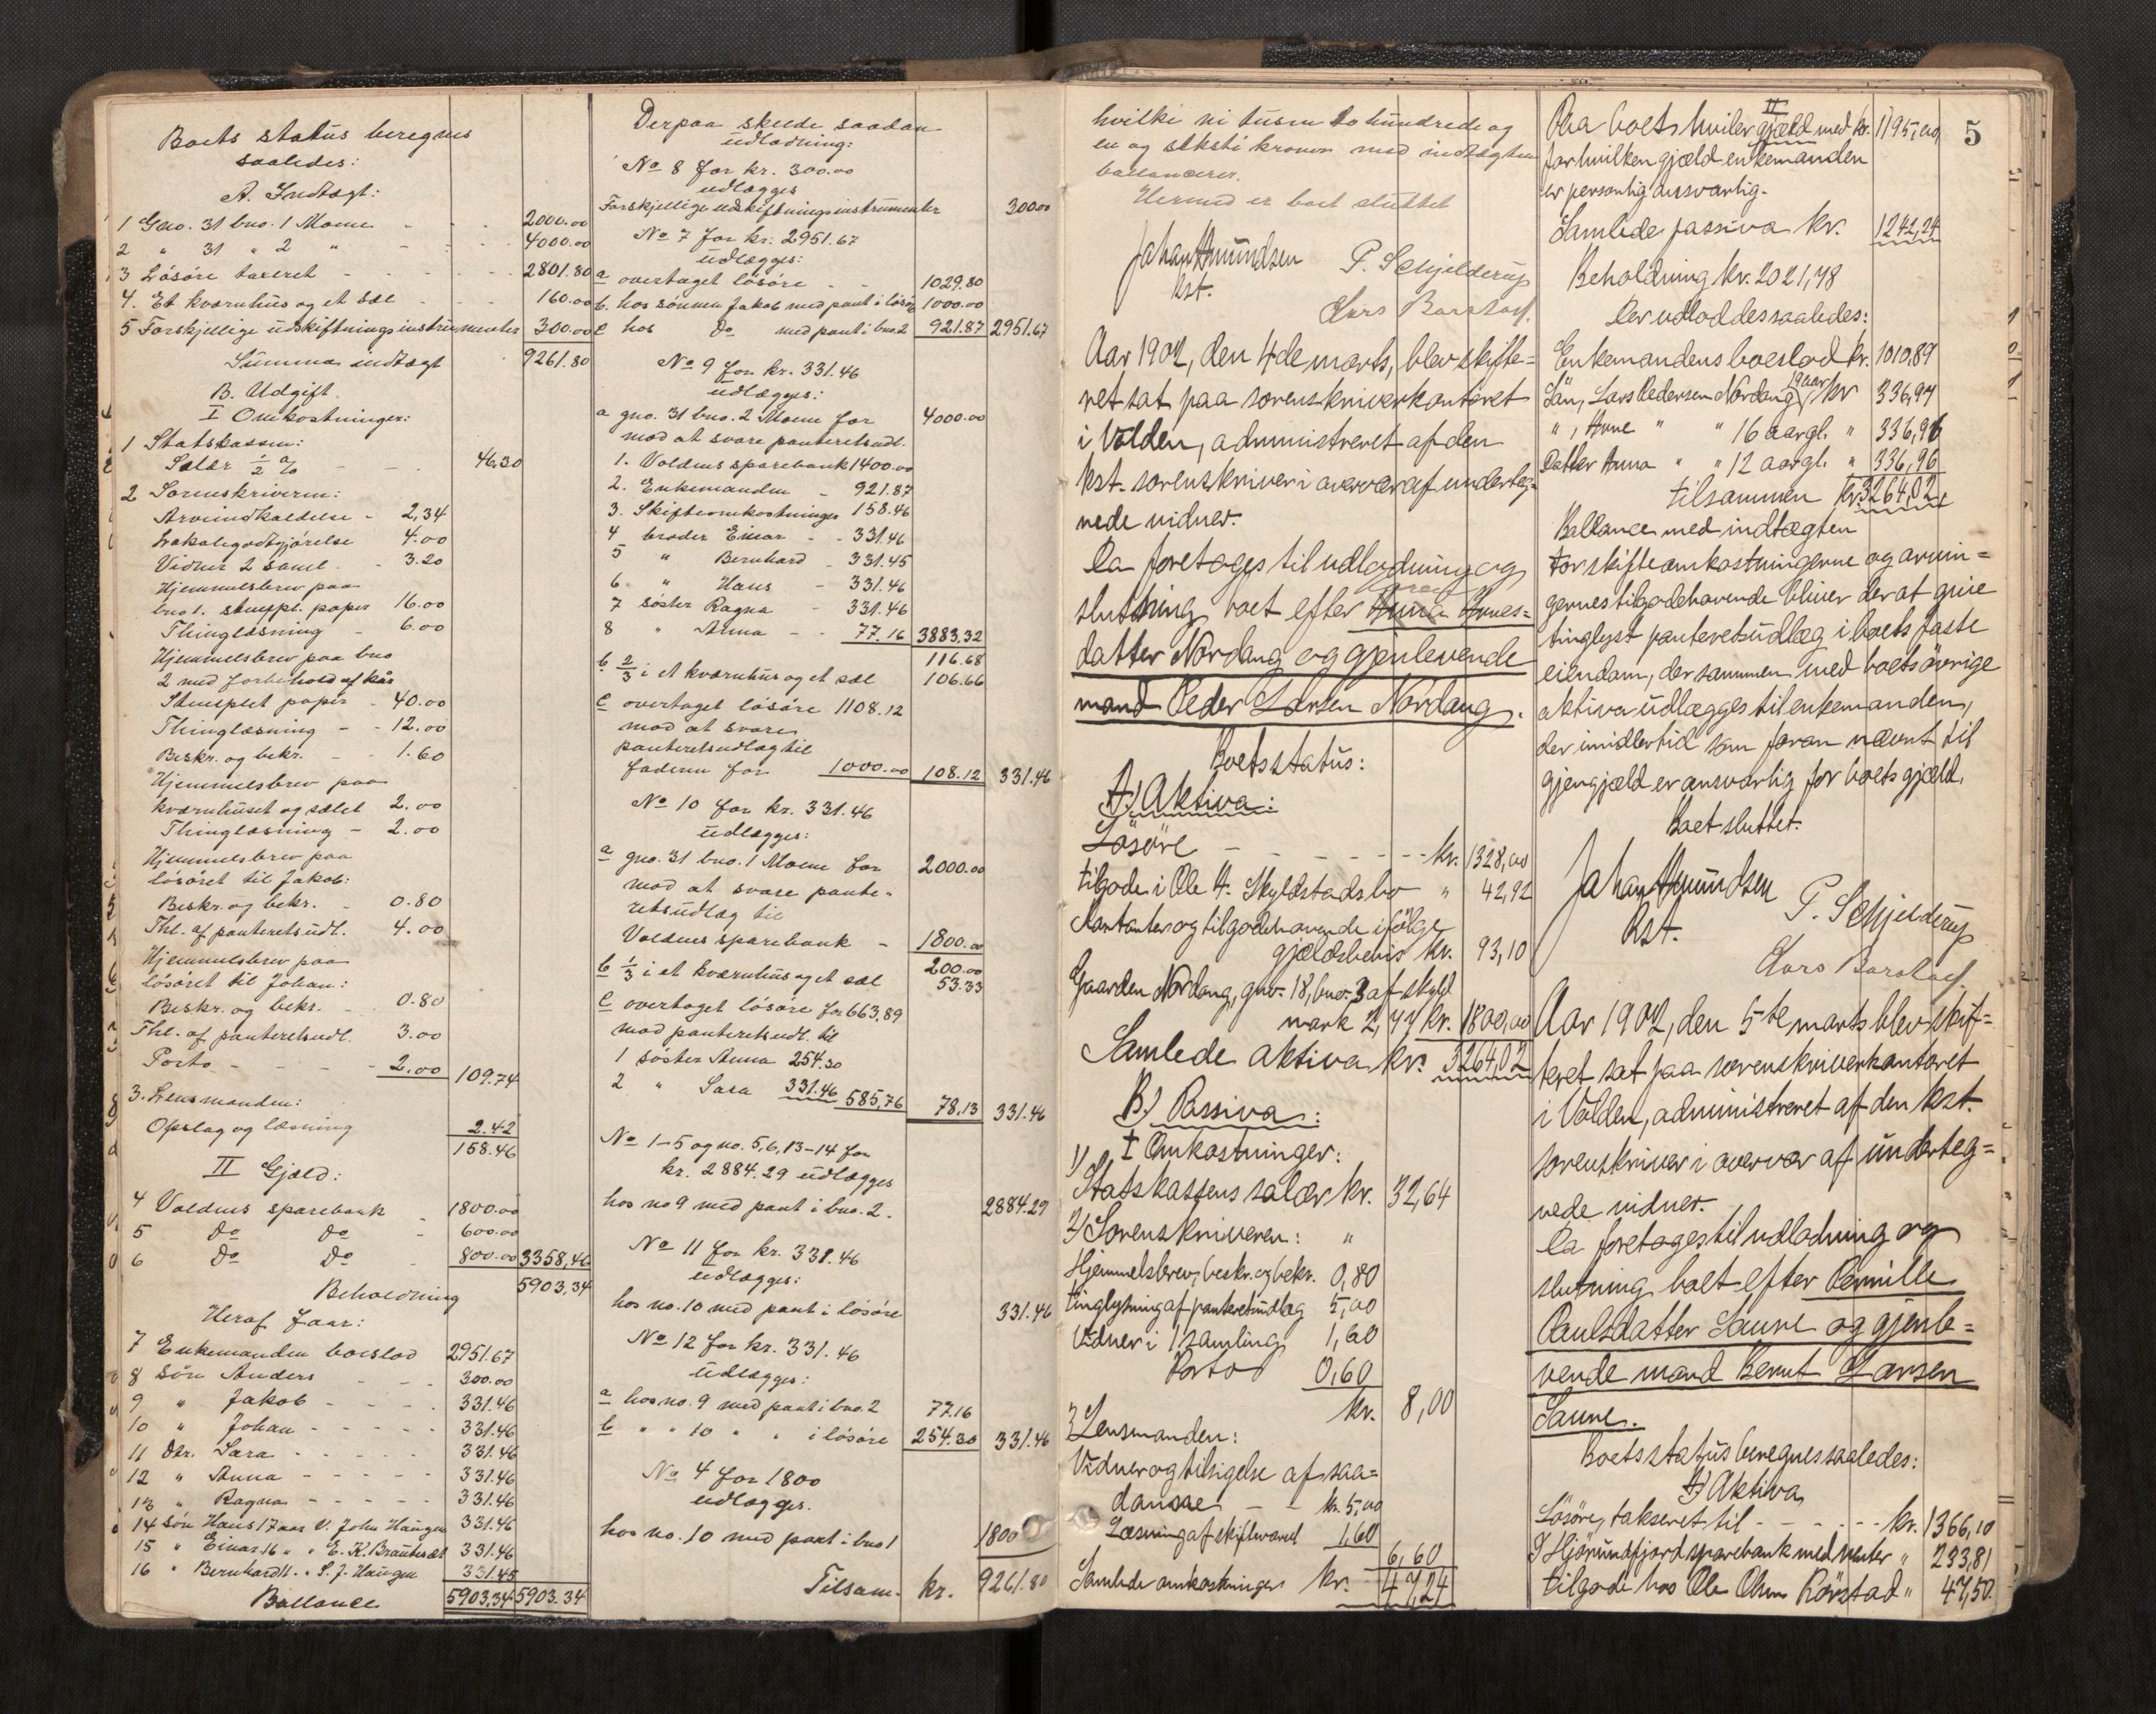 Boets status beregnes
saaledes:
A. Indtægt:
1 Gno. 31 bno. 1 Moene - - 2000.00
2 " 31 " 2 " - - - 4000.00
3 Løsøre taxeret - - - - - 2801.80
4. Et kværnhus og et sæl - - - 160.00
5 Forskjellige udskiftningsinstrumenter 300.00
Summa indtægt 9261.80
B. Udgift.
I Omkostninger:
1 Statskassen:
Salær ½ % - - - 46.30
2 Sorenskriveren:
Arveindkaldelse - 2,34
Lokalegodtgjørelse 4.00
Vidner 2 saml. - 3.20
Hjemmelsbrev paa
bno 1. stempl. papir 16.00
Thinglæsning - 6.00
Hjemmelsbrev paa bno
2 med forbehold af kår
Stemplet papir - 40.00
Thinglæsning - - 12.00
Beskr. og bekr. - 1.60
Hjemmelsbrev paa
kværnhuset og sælet 2.00
Thinglæsning - 2.00
Hjemmelsbrev paa
løsøret til Jakob:
Beskr. og bekr. - 0.80
Thl. af panteretsudl. 4.00
Hjemmelsbrev paa
løsøret til Johan:
Beskr. og bekr. - 0.80
Thl. af panteretsudl. 3.00
Porto - - - - 2.00 109.74
3. Lensmanden:
Opslag og læsning 2.42
158.46
II Gjæld:
4 Voldens sparebank - 1800.00
5 do do - 600.00
6 do do 800.00 3358,46
Beholdning 5903,34
Heraf faar:
7 Enkemanden boeslod 2951.67
8 Søn Anders - - - 300.00
9 " Jakob - - - - 331.46
10 " Johan - - - - - 331.46
11 Dtr. Sara - - - - - 331.46
12 " Anna - - - - - 331.46
13 " Ragna - - - - - 331.46
14 Søn Hans 17 aar v. John Haugen 331.46
15 " Einar 16 " " E. K. Brautesæt 331.46
16 " Bernhard 11. " S. J. Haugen 331.45
Ballance 5903,34 5903.34
Derpaa skede saadan
udlodning:
No 8 for kr. 300.00
udlægges
Forskjellige udskiftningsinstrumenter 300.00
No 7 for kr. 2951.67
udlægges:
a overtaget løsøre - - 1029.80
b. hos sønnen Jakob med pant i løsøre 1000.00
c hos do med pant i bno 2 921.87 2951.67
No 9 for kr. 331.46
udlægges:
a gno. 31 bno. 2 Moene for 4000.00
mod at svare panteretsudl.
1. Voldens sparebank 1400.00
2. Enkemanden - 921.87
3. Skifteomkostninger 158.46
4 broder Einar - - 331.46
5 " Bernhard - 331.45
6 " Hans - 331.46
7 søster Ragna - 331.46
8 " Anna - - 77.16 3883.32
116.68
b ⅔ i et kværnhus og et sæl 106.66
c overtaget løsøre 1108.12
mod at svare
panteretsudlæg til
faderen for 1000.00 108.12 331.46
No 10 for kr. 331.46
udlægges:
a gno. 31 bno. 1 Moene for 2000.00
mod at svare pante-
retsudlæg til
Voldens sparebank - 1800.00
200.00
b ⅓ i et kværnhus og et sæl 53.33
c overtaget løsøre for 663,89
mod panteretsudl. til
1 søster Anna 254.30
2 " Sara 331.46 585,76 78,13 331.46
No 1-5 og no. 5, 6, 13-14 for
kr. 2884.29 udlægges
hos no 9 med pant i bno. 2. 2884.29
No 11 for kr. 331.46
udlægges:
hos no. 10 med pant i løsøre 331.46
No 12 for kr. 331.46
udlægges:
a hos no. 9 med pant i bno. 2 77.16
b " " 10 " " i løsøre 254.30 331.46
No 4 for 1800
udlægges.
hos no. 10 med pant i bno 1 1800
Tilsam. kr. 9261.80
hvilke ni tusen to hundrede og
en og seksti kroner med indtægten
ballancerer.
Hermed er boet sluttet
Johan Amundsen
Kst.
P. Schjelderup
Lars Barstad.
Aar 1902, den 4de marts, blev skifte-
ret sat paa sorenskriverkontoret
i Volden, administreret af den
kst. sorenskriver i overvær af underteg-
nede vidner.
Da foretoges til udlodning og
slutning boet efter Anna Hanes-
datter Nordang og gjenlevende
mand Peder Larsen Nordang.
Boets status:
A.) Aktiva:
Løsøre - - - - - - - kr. 1328,00
tilgode i Ole H. Skyldstads bo " 42,92
Kontanter og tilgodehavende ifølge
gjældsbevis kr. 93,10
Gaarden Nordang, gno. 18, bno. 3 af skyld
mark 2,77 kr. 1800,00
Samlede aktiva kr. 3264,02
B.) Passiva:
I Omkostninger:
1) Statskassens salær kr. 32,64
2) Sorenskriveren: "
Hjemmelsbrev, beskr. og bekr. 0,80
tinglysning af panteretsudlæg 5,00
Vidner i 1 samling 1,60
Porto 0,60
kr. 8,00
3) Lensmanden:
Vidner og tilsigelse af saa-
danne - - kr. 5,00
Læsning af skiftevarsel 1,60
6,60
Samlede omkostninger kr. 47,24
5
II
Paa boet hviler gjæld med kr. 1195,00,
for hvilken gjæld enkemanden
er personlig ansvarlig.
Samlede passiva kr. 1242,24
Beholdning kr. 2021,78
Der udloddes saaledes:
Enkemandens boeslod kr. 1010,89
Søn, Lars Pedersen Nordang 19 aar kr 336,97
" , Hane " " 16 aar gl. " 336,96
Datter Anna " " 12 aar gl. " 336,96
tilsammen kr. 3264,02,
Ballance med indtægten
For skifteomkostningerne og arvin-
gernes tilgodehavende bliver der at give
tinglyst panteretsudlæg i boets faste
eiendom, der sammen med boets øvrige
aktiva udlægges til enkemanden,
der imidlertid som foran nævnt til
gjengjæld er ansvarlig for boets gjæld.
Boet sluttet.
Johan Amundsen
Kst.
P. Schjelderup
Lars Barstad.
Aar 1902, den 5te marts blev skif-
teret sat paa sorenskriverkontoret
i Volden, administreret af den kst.
sorenskriver i overvær af underteg-
nede vidner.
Da foretoges til udlodning og
slutning boet efter Pernille
Paulsdatter Saure og gjenle-
vende mand Bernt Larsen
Saure.
Boets status beregnes saaledes:
A) Aktiva
Løsøre, takseret til - - - - - kr. 1366,10
I Hjørundfjord sparebank med renter " 233,81
tilgode hos Ole Olsen Rørstad " 47,50.